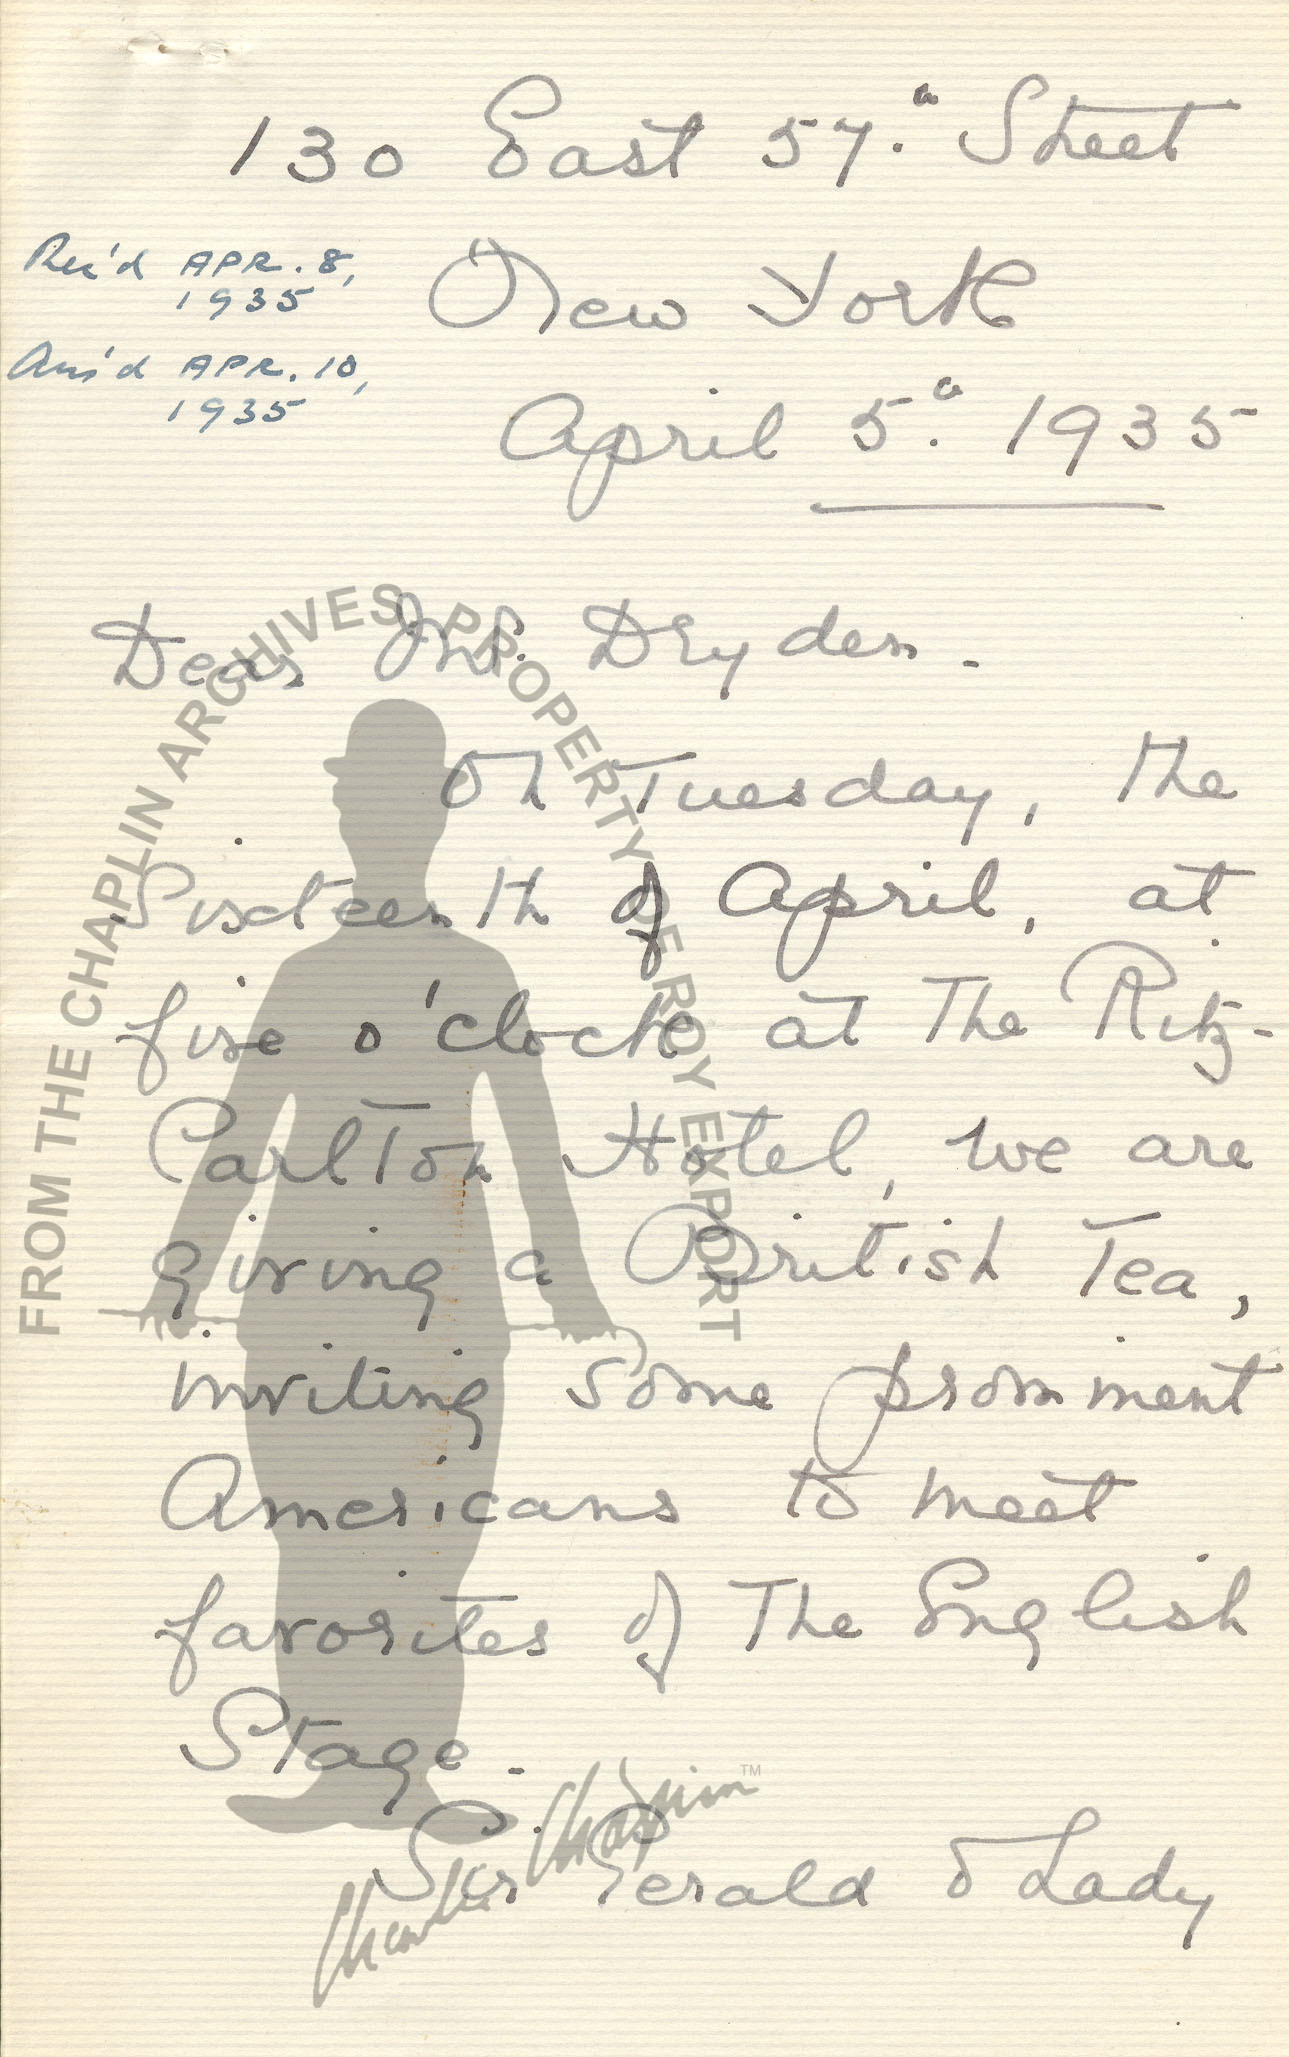 130 East 57.a Street
Rec'd APR. 8,
1935
New York
Ans'd APR. 10,
1935
April 5.a 1935
Dear Mr. Dryden.
On Tuesday, the
Sixteenth of April, at
five o'clock at The Ritz-
Carlton Hotel, we are
giving a British Tea,
inviting some prominent
Americans to meet
favorites of The English
Stage.
Sir Gerald & Lady
FROM THE CHAPLIN ARCHIVES, PROPERTY OF ROY EXPORT
Charles Chaplin TM